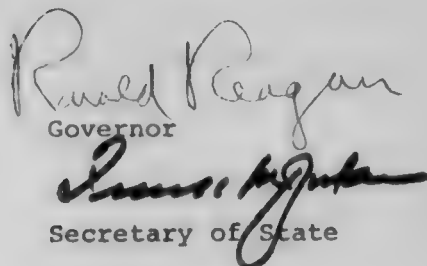 Ronald Reagan
Governor
Secretary of State